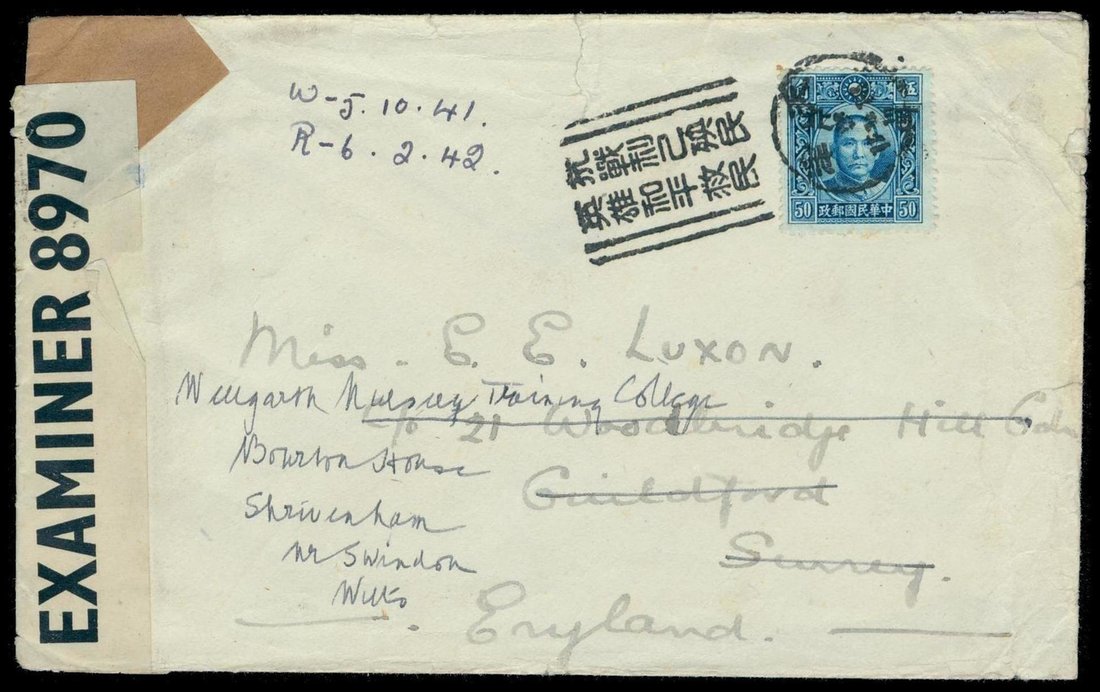 EXAMINER 8970
W-5.10.41.
R-6.2.42.
抗戰利己殃民
英雄和平救民
50 中華民國郵政 50
Miss. E. E. LUXON.
Wellgarth Nursery Training College
c/o 21 Woodbridge Hill Gdn
Bourton House
Guildford
Shrivenham
nr Swindon
Surrey.
Wilts
England.